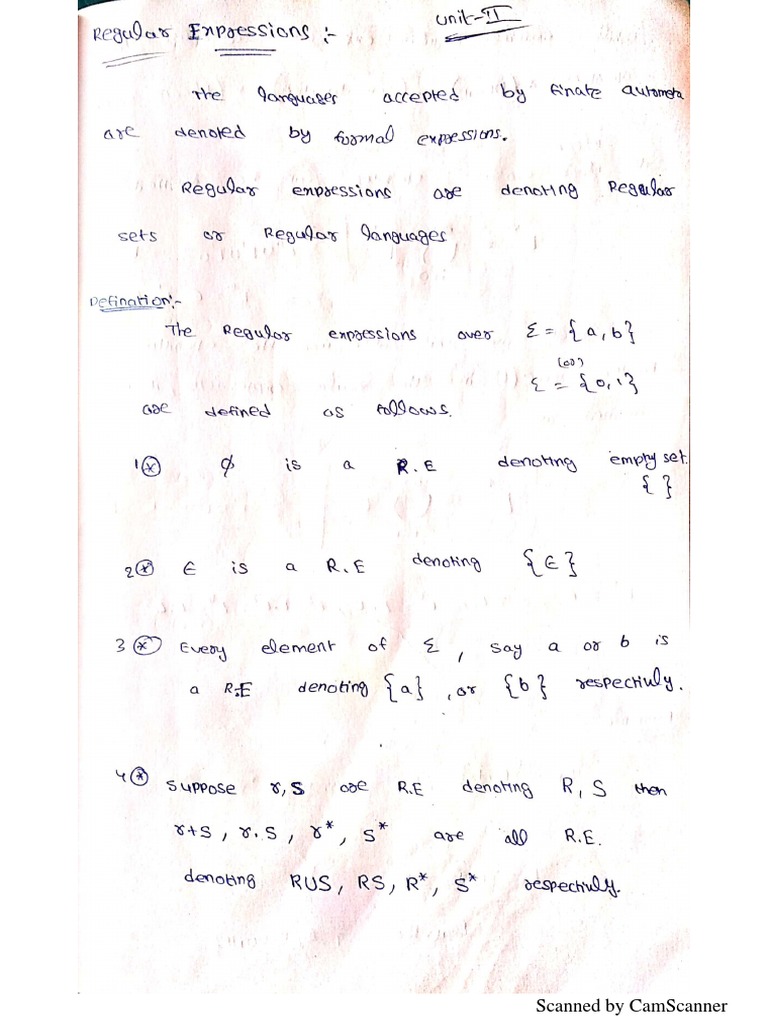 Regular Expressions :- Unit-II
The languages accepted by finate automata
are denoted by formal expressions.
Regular expressions are denoting Regular
sets or Regular languages
Defination:-
The Regular expressions over Σ = {a, b}
(or)
Σ = {0, 1}
are defined as follows.
1 * ϕ is a R.E denoting empty set.
{ }
2 * ∈ is a R.E denoting {∈}
3 * Every element of Σ, say a or b is
a R.E denoting {a}, or {b} respectivly.
4 * Suppose r, s are R.E denoting R, S then
r+s, r.s, r*, s* are all R.E.
denoting RUS, RS, R*, S* respectivly.
Scanned by CamScanner